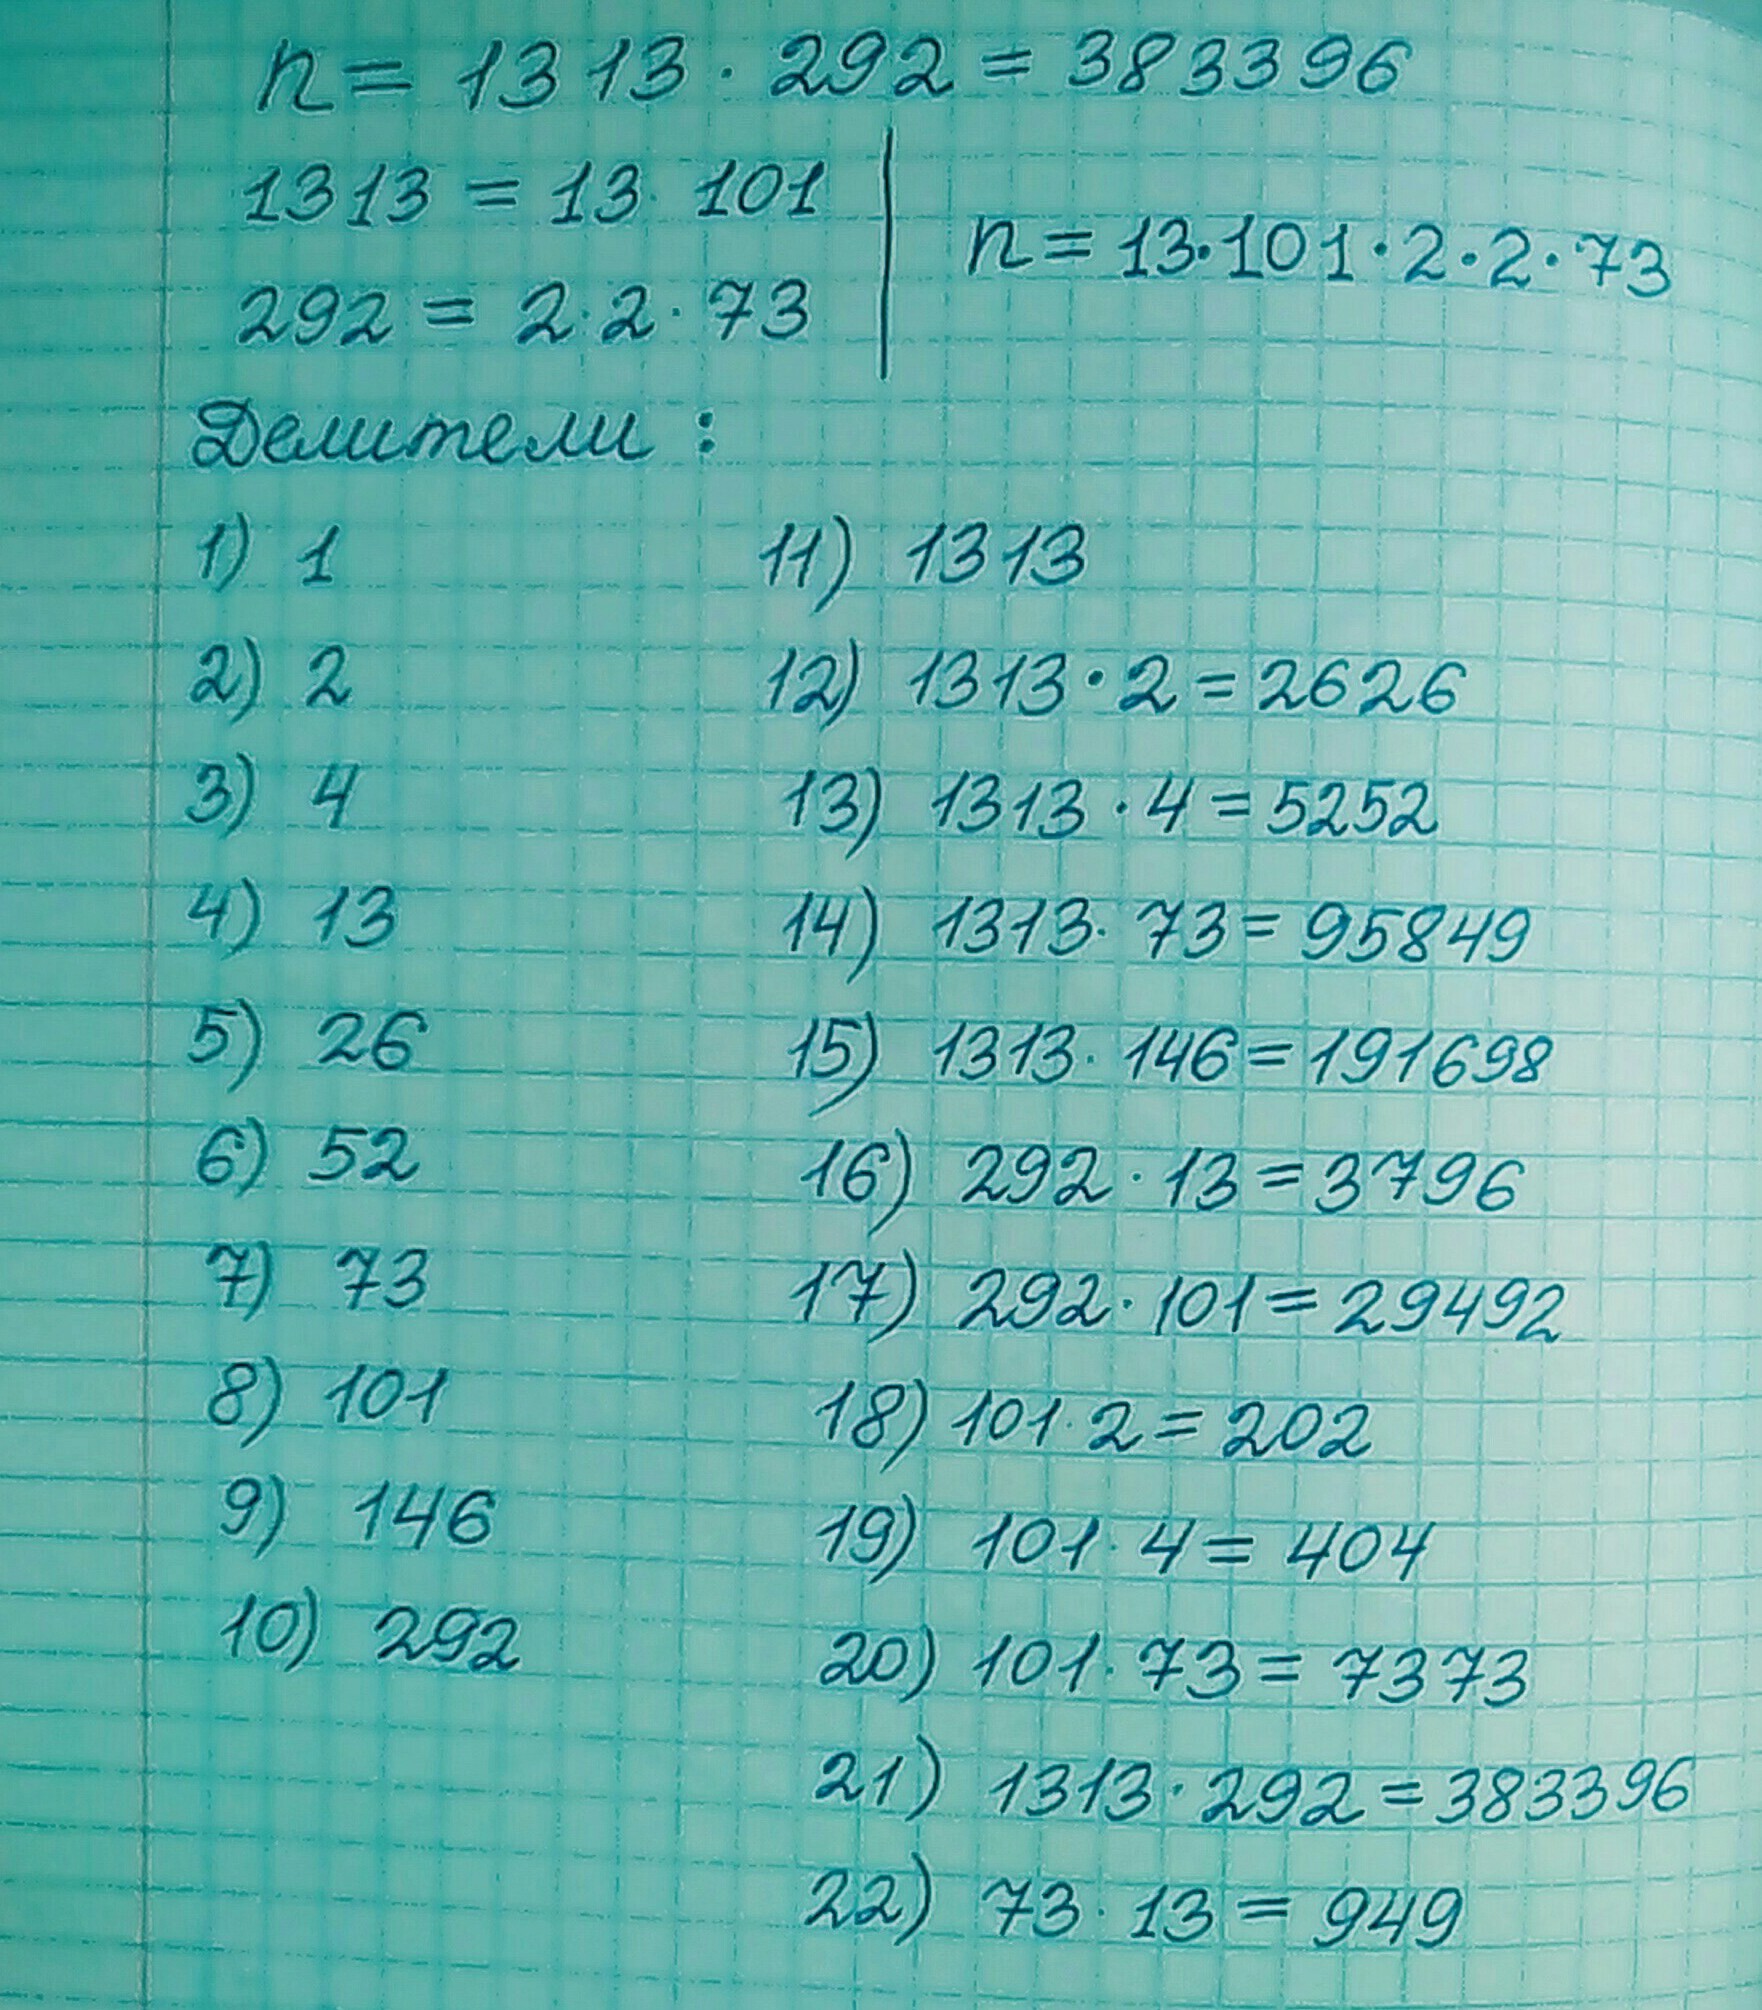 n = 1313 · 292 = 383396
1313 = 13 · 101
292 = 2 · 2 · 73
n = 13 · 101 · 2 · 2 · 73
Делители :
1) 1
2) 2
3) 4
4) 13
5) 26
6) 52
7) 73
8) 101
9) 146
10) 292
11) 1313
12) 1313 · 2 = 2626
13) 1313 · 4 = 5252
14) 1313 · 73 = 95849
15) 1313 · 146 = 191698
16) 292 · 13 = 3796
17) 292 · 101 = 29492
18) 101 · 2 = 202
19) 101 · 4 = 404
20) 101 · 73 = 7373
21) 1313 · 292 = 383396
22) 73 · 13 = 949